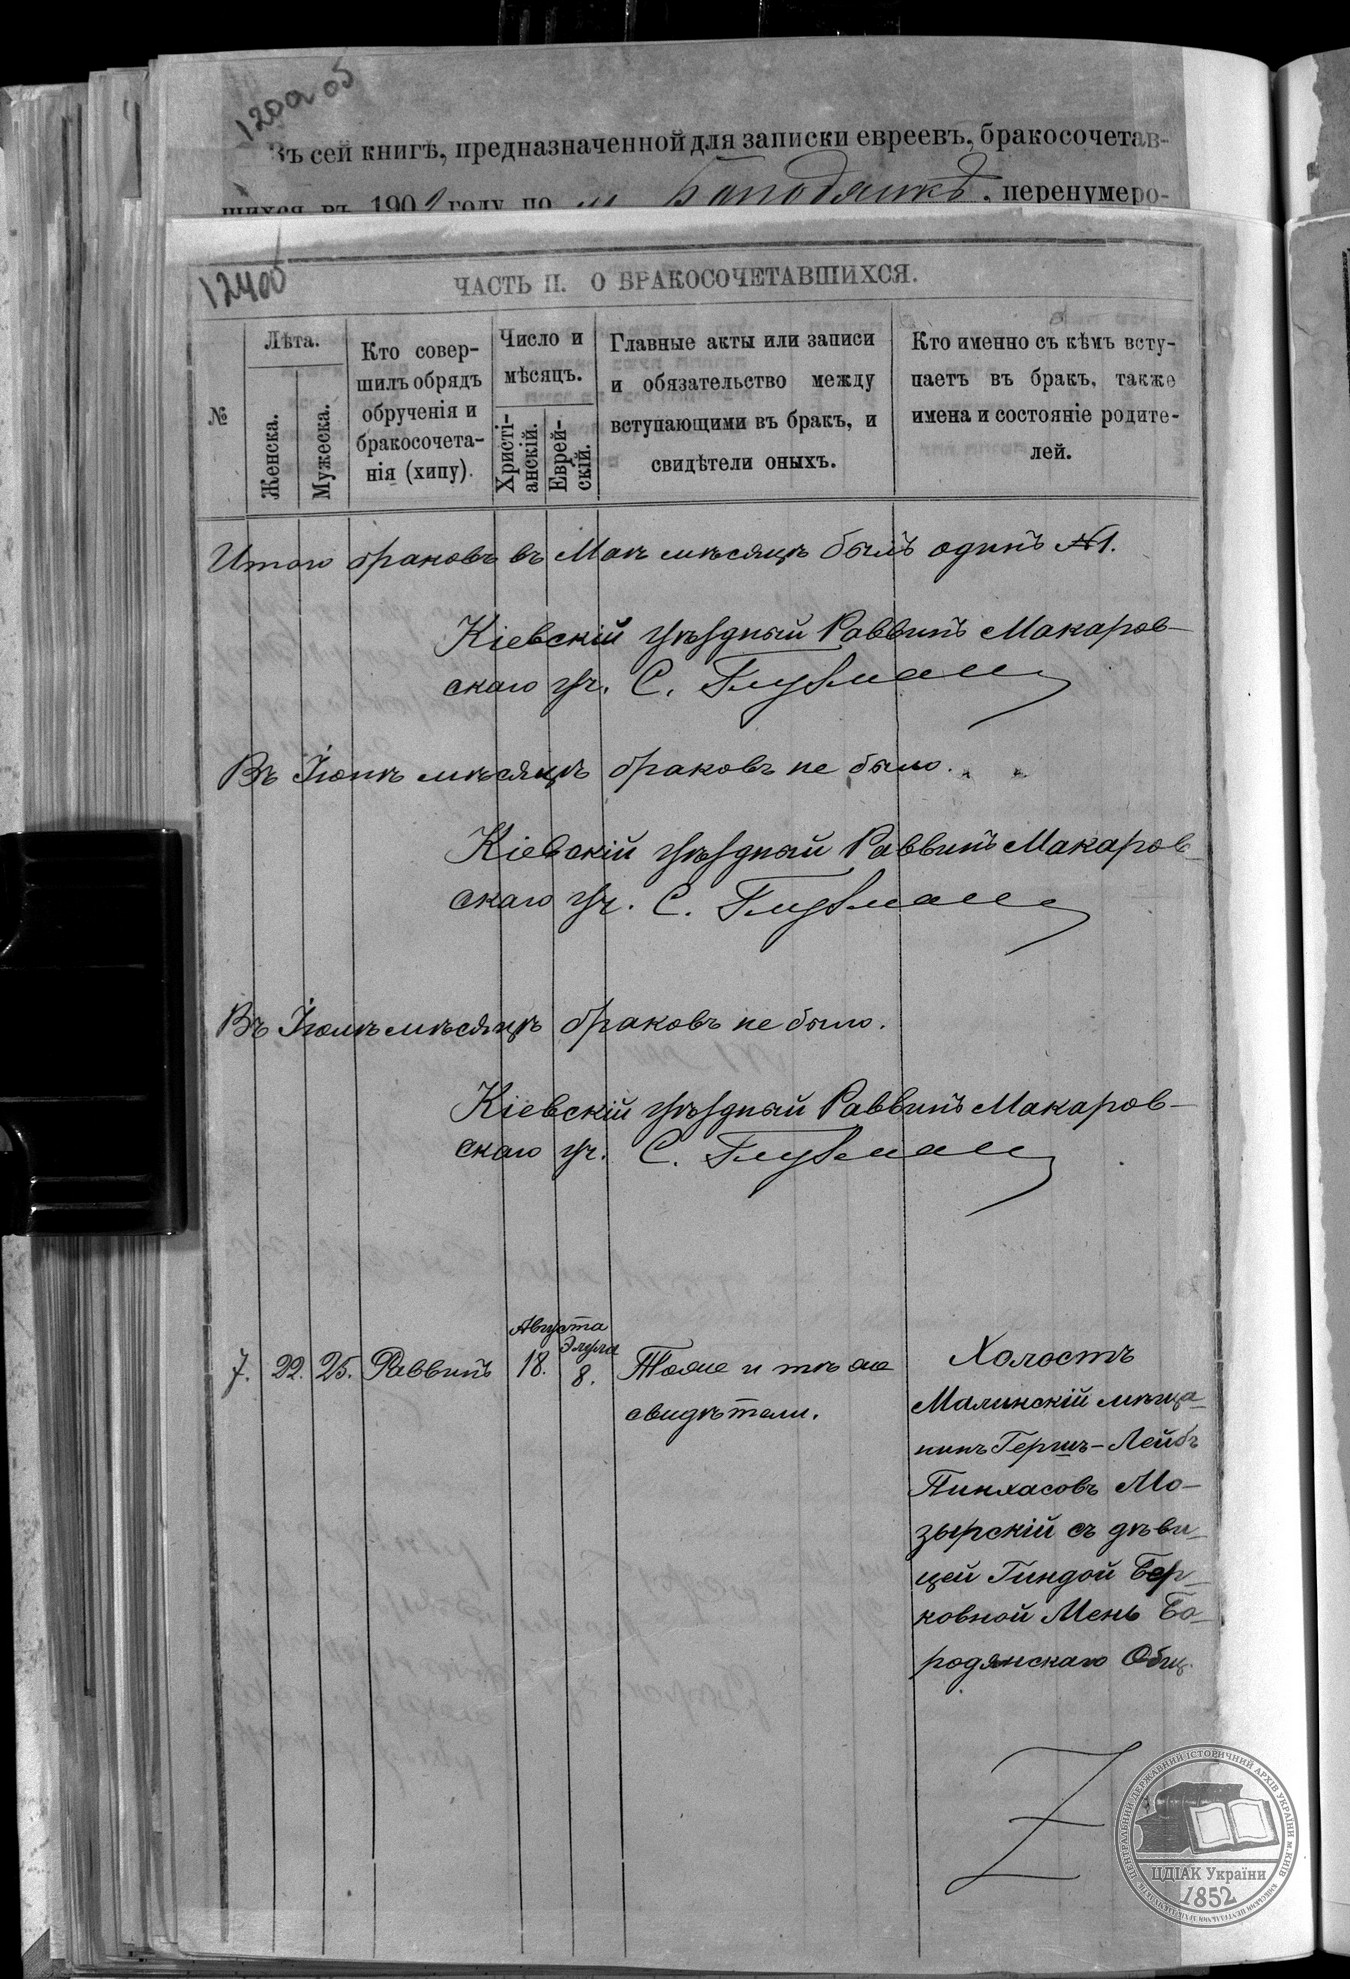 120 об
Въ сей книгѣ, предназначенной для записки евреевъ, бракосочетав-
шихся въ 190 году по м Бородянкѣ, перенумеро-
124об
ЧАСТЬ II. О БРАКОСОЧЕТАВШИХСЯ.
№
Лѣта.
Женска.
Мужеска.
Кто совер-
шилъ обрядъ
обрученія и
бракосочета-
нія (хипу).
Число и
мѣсяцъ.
Христі-
анскій.
Еврей-
скій.
Главные акты или записи
и обязательство между
вступающими въ бракъ, и
свидѣтели оныхъ.
Кто именно съ кѣмъ всту-
паетъ въ бракъ, также
имена и состояніе родите-
лей.
Итого браковъ въ Маѣ мѣсяцѣ былъ одинъ №1.
Кіевскій уѣздный Раввинъ Макаров-
скаго уч. С. Глузман
Въ Іюнѣ мѣсяцѣ браковъ не было.
Кіевскій уѣздный Раввинъ Макаров-
скаго уч. С. Глузман
Въ Іюлѣ мѣсяцѣ браковъ не было.
Кіевскій уѣздный Раввинъ Макаров-
скаго уч. С. Глузман
7.
22.
25.
Раввинъ
Августа
18.
Элула
8.
Тоже и тѣ же
свидѣтели.
Холостъ
Малинскій мѣща-
нинъ Гершъ-Лейбъ
Пинхасовъ Мо-
зырскій съ дѣви-
цей Гиндой Бер-
ковной Мень Бо-
родянскаго Общ.
ЦЕНТРАЛЬНИЙ ДЕРЖАВНИЙ ІСТОРИЧНИЙ АРХІВ УКРАЇНИ м. КИЇВ
ЦДІАК України
1852